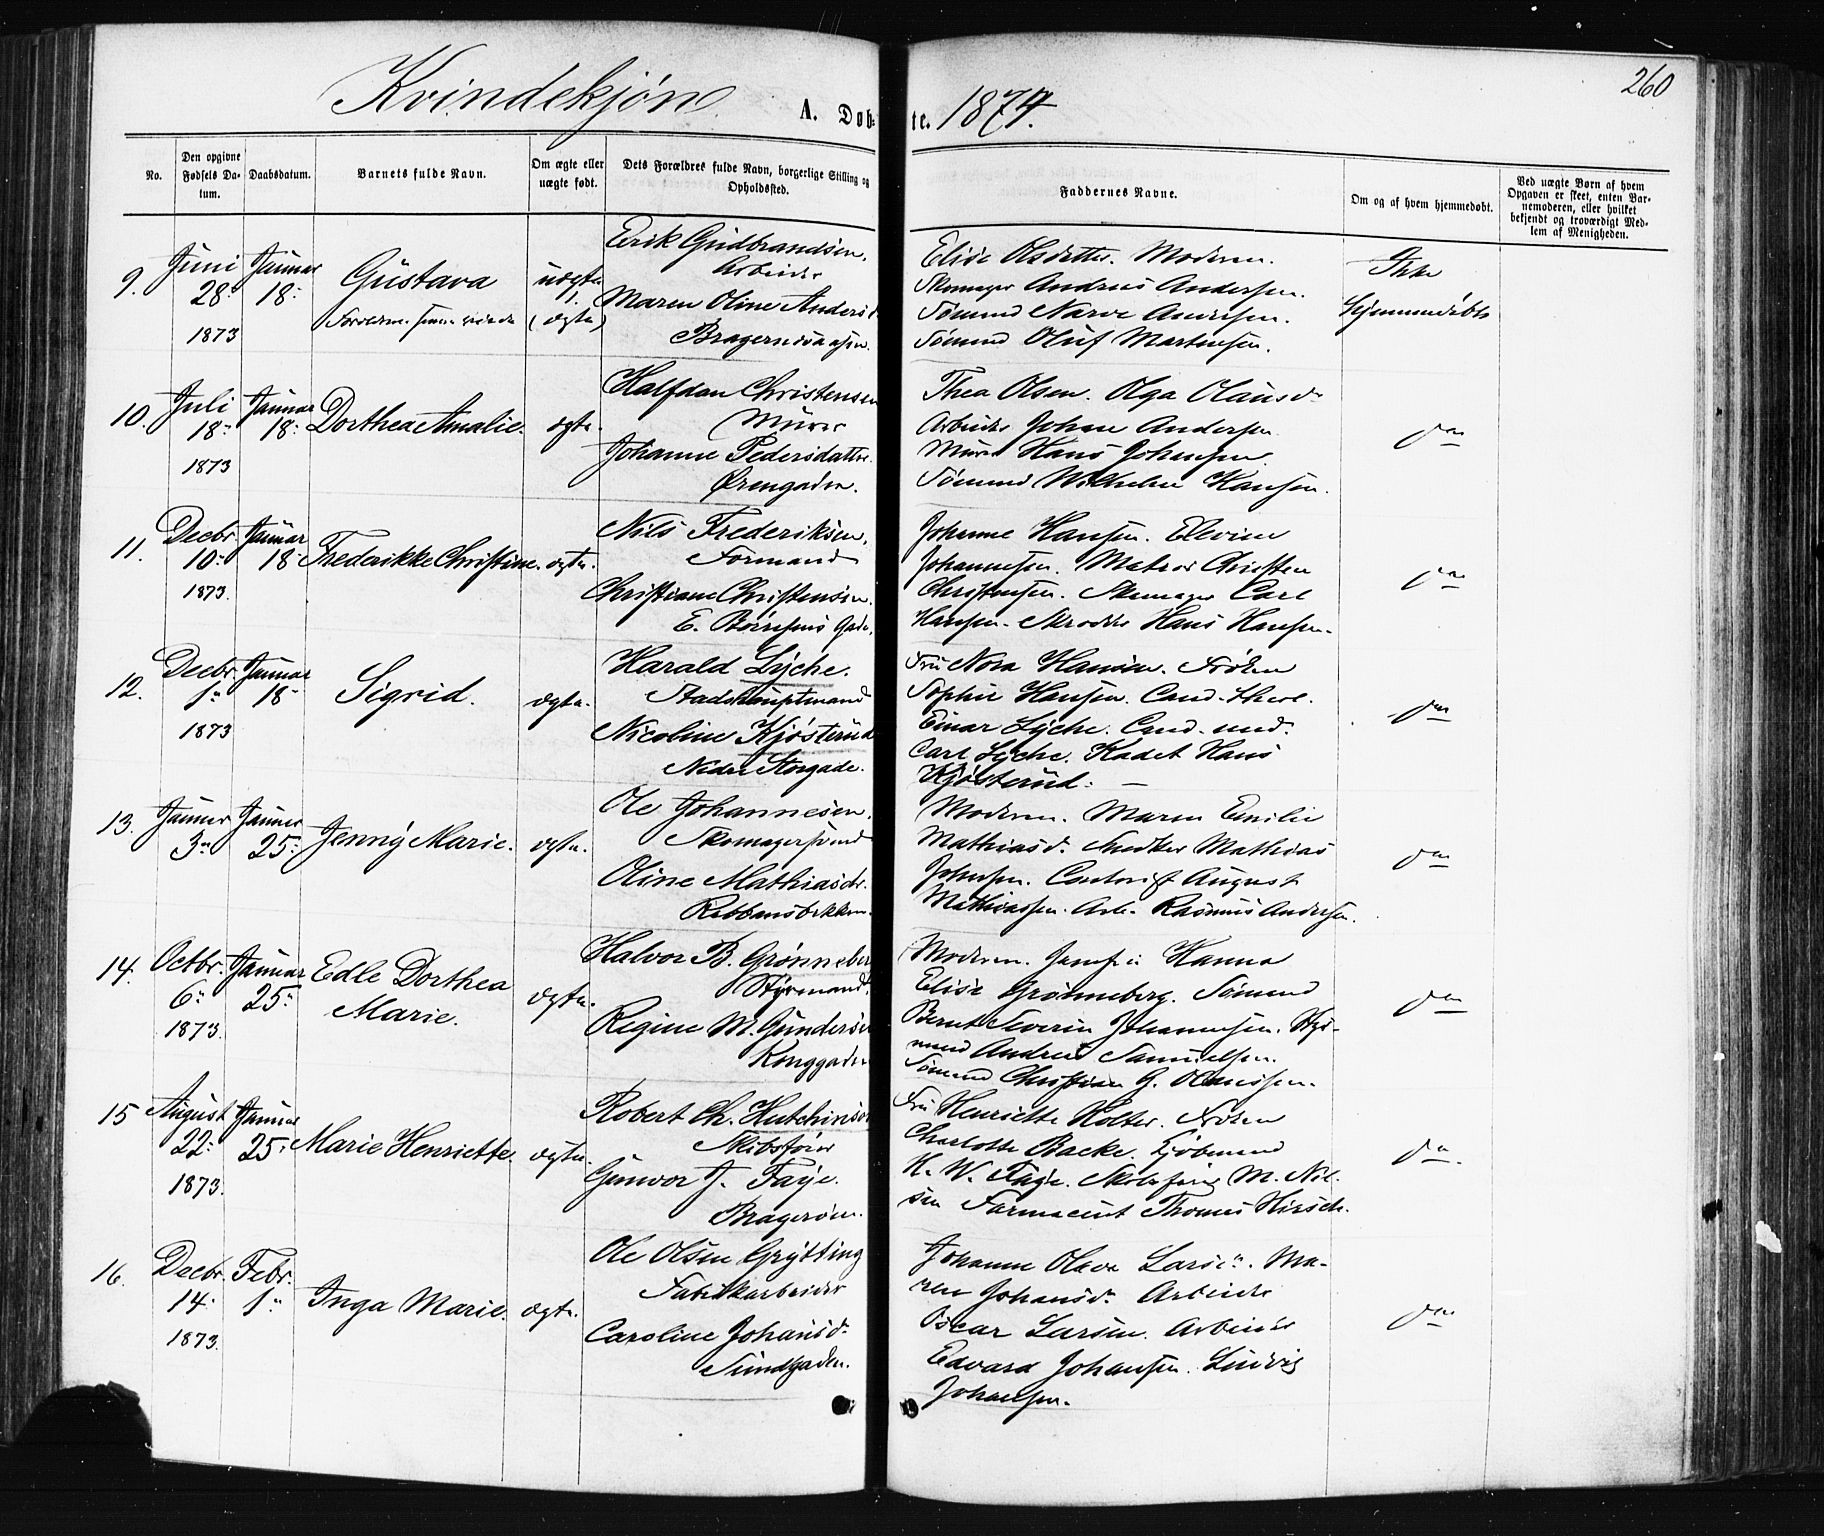 260
Kvindekjøn. A. Døb- te. 1874.
No.
Den opgivne Fødsels Da- tum.
Daabsdatum.
Barnets fulde Navn.
Om ægte eller uægte født.
Dets Forældres fulde Navn, borgerlige Stilling og Opholdssted.
Faddernes Navne.
Om og af hvem hjemmedøbt.
Ved uægte Børn af hvem Opgaven er skeet, enten Bar- nemoderen, eller hvilket bekjendt og troværdigt Med- lem af Menigheden.
9.
Juni 28: 1873
Januar 18:
Gustava
uægte (ægte)
Erik Gudbrandsen,
Arbeider
Maren Oline Anders
Bragernesaasen.
Elise Olsdatter. Moderen.
Skomager Andreas Andersen.
Sømand Narve Andersen.
Sømand Oluf Martinsen.
Ikke
hjemmedøbt
10.
Juli 18: 1873
Januar 18:
Dorthea Amalie.
ægte.
Halfdan Christensen
Murer
Johanne Pedersdatter.
Ørengaden.
Thea Olsen. Olga Olausd.
Arbeider Johan Andersen
Murer Hans Johansen.
Sømand Wilhelm Hansen.
do
11.
Decbr. 10: 1873.
Januar 18
Frederikke Christine.
ægte.
Nils Frederiksen,
Formand
Christiane Christensen.
E. Børresens Gade.
Johanne Hansen. Elevine
Johannesen. Matros Christen
Christensen. Skomager Carl
Hansen. Skrædder Hans Hansen.
do
12.
Decbr. 1: 1873
Januar 18
Sigrid.
ægte.
Harald Lyche.
Stadshauptmand
Nicoline Kjøsterud
Nedre Storgade.
Fru Nora Hansen. Frøken
Sophie Hansen. Cand. theol.
Einar Lyche. Cand. med.
Carl Lyche. Kadet Hans
Kjøsterud.
do
13.
Januar 3:
Januar 25:
Jenny Marie.
ægte.
Ole Johannesen,
Skomagersvend
Oline Mathiasdr.
Røbbansbekken.
Moderen. Maren Emilie
Mathiasd. Snedker Mathias
Johnsen. Contorist August
Mathiassen. Arb. Rasmus Andersen.
do
14.
Octbr. 6: 1873.
Januar 25:
Edle Dorthea
Marie.
ægte.
Halvor B. Grønneberg
Styrmand.
Regine M. Gundersen
Konggaden
Moderen. Hanna
Elise Grønneberg. Sømand
Bernt Severin Johannesen. Styr-
mand Andreas Samuelsen.
Sømand Christian G. Olaussen.
do
15
August 22: 1873.
Januar 25:
Marie Henriette.
ægte.
Robert Ch. Hutchinson
Skibsfører
Gunvor J. Faye.
Bragerøen.
Fru Henriette Holter. Frøken
Charlotte Backe. Kjøbmand
H. W. Faye. Skibsfører M. Niel-
sen Farmaceut Thomas Hirsch.
do
16.
Decbr. 14: 1873.
Febr. 1:
Inga Marie.
ægte.
Ole Olsen Grytting
Fabrikarbeider
Caroline Johansd.
Sundgaden.
Johanne Olava Larsen. Ma-
ren Johansd. Arbeider
Oscar Larsen. Arbeider
Edvard Johansen. Ludvig
Johansen.
do